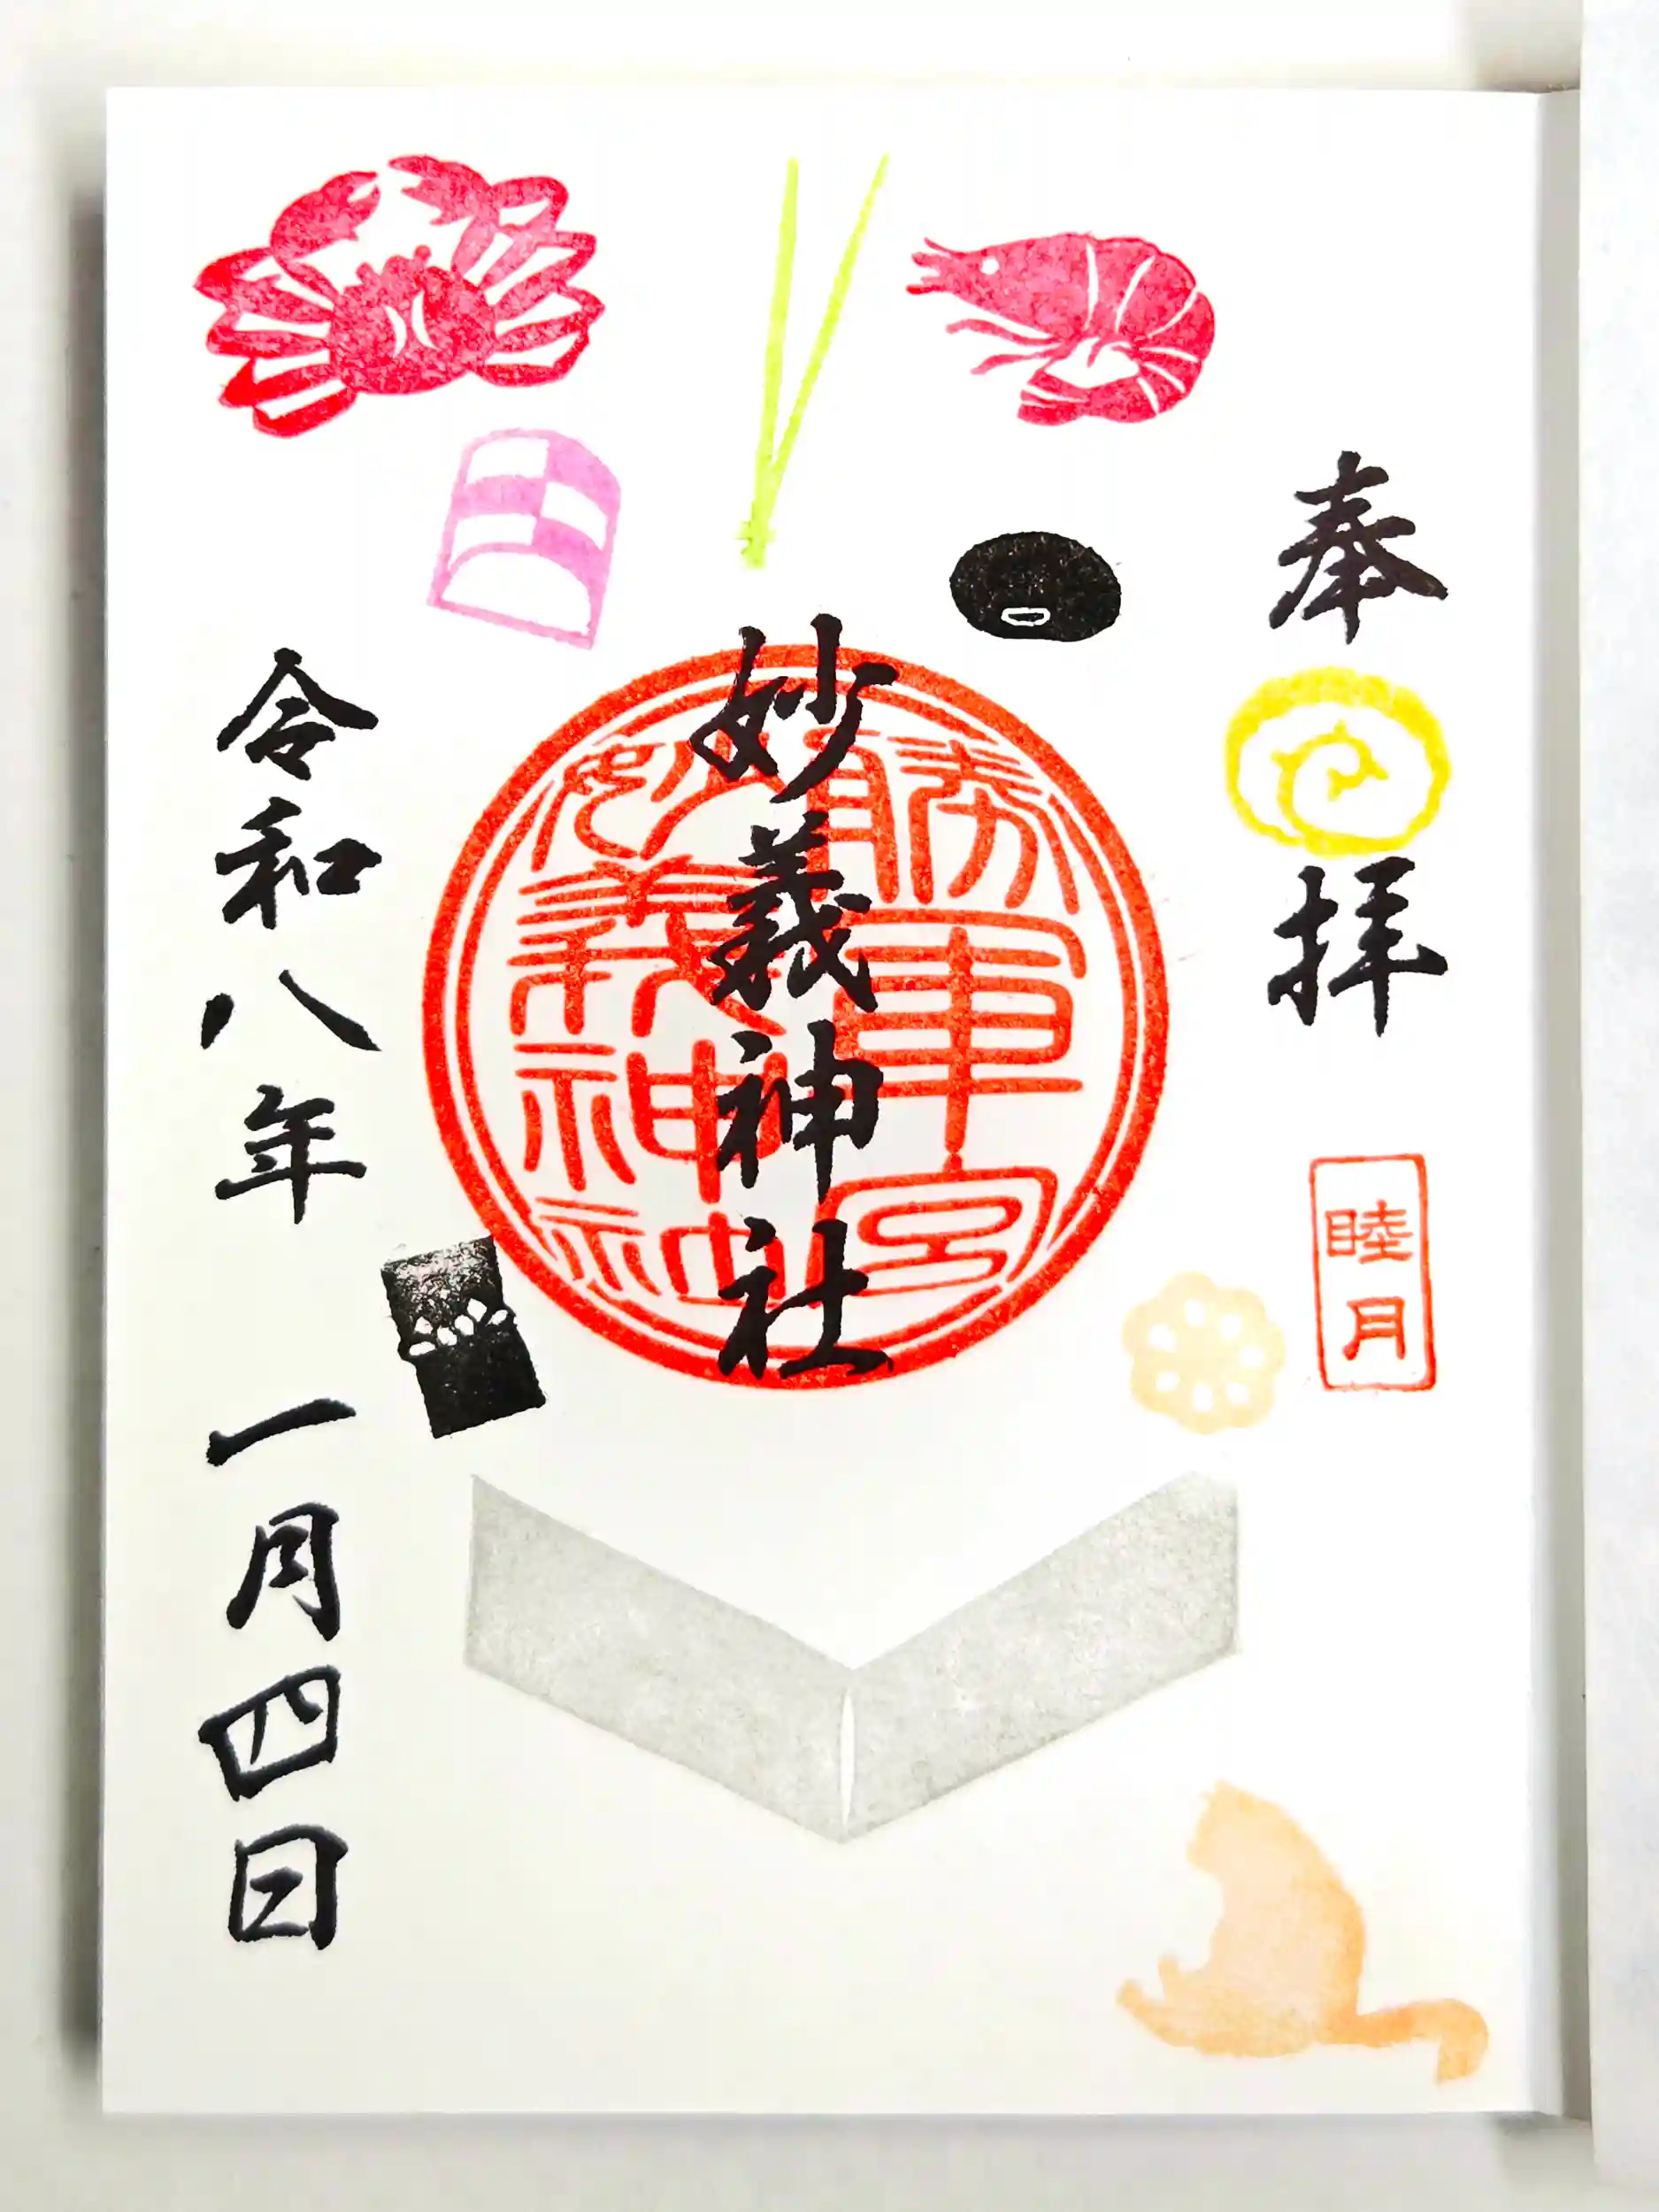 奉拝
睦月
妙義神社
勝軍宮
妙義神社
令和八年 一月四日